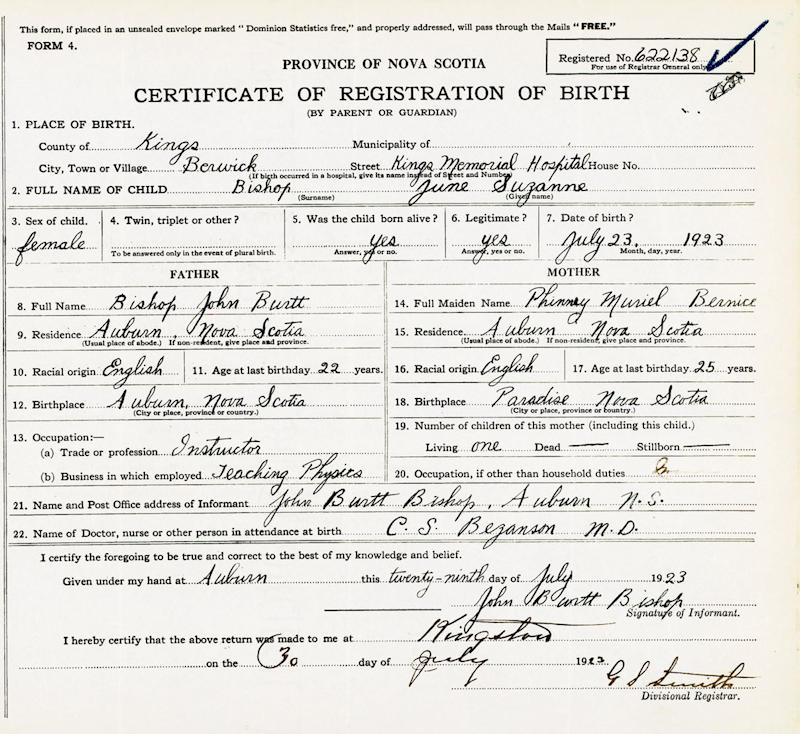 This form, if placed in an unsealed envelope marked "Dominion Statistics free," and properly addressed, will pass through the Mails "FREE."
FORM 4.
Registered No. 622138
For use of Registrar General only
PROVINCE OF NOVA SCOTIA
CERTIFICATE OF REGISTRATION OF BIRTH
(BY PARENT OR GUARDIAN)
1. PLACE OF BIRTH.
County of Kings Municipality of
City, Town or Village Berwick Street Kings Memorial Hospital House No.
(If birth occurred in a hospital, give its name instead of Street and Number)
2. FULL NAME OF CHILD Bishop June Suzanne
(Surname) (Given name)
3. Sex of child. 4. Twin, triplet or other? 5. Was the child born alive? 6. Legitimate? 7. Date of birth?
female yes yes July 23, 1923
To be answered only in the event of plural birth. Answer, yes or no. Answer, yes or no. Month, day, year.
FATHER MOTHER
8. Full Name Bishop John Burtt 14. Full Maiden Name Phinney Muriel Bernice
9. Residence Auburn, Nova Scotia 15. Residence Auburn Nova Scotia
(Usual place of abode.) If non-resident, give place and province. (Usual place of abode.) If non-resident, give place and province.
10. Racial origin English 11. Age at last birthday 22 years. 16. Racial origin English 17. Age at last birthday 25 years.
12. Birthplace Auburn, Nova Scotia 18. Birthplace Paradise Nova Scotia
(City or place, province or country.) (City or place, province or country.)
13. Occupation:— 19. Number of children of this mother (including this child.)
(a) Trade or profession Instructor Living one Dead — Stillborn —
(b) Business in which employed Teaching Physics 20. Occupation, if other than household duties
21. Name and Post Office address of Informant John Burtt Bishop, Auburn N.S.
22. Name of Doctor, nurse or other person in attendance at birth C. S. Bezanson M.D.
I certify the foregoing to be true and correct to the best of my knowledge and belief.
Given under my hand at Auburn this twenty-ninth day of July 1923
John Burtt Bishop
Signature of Informant.
I hereby certify that the above return was made to me at Kingston
on the 30 day of July 1923
G S Smith
Divisional Registrar.